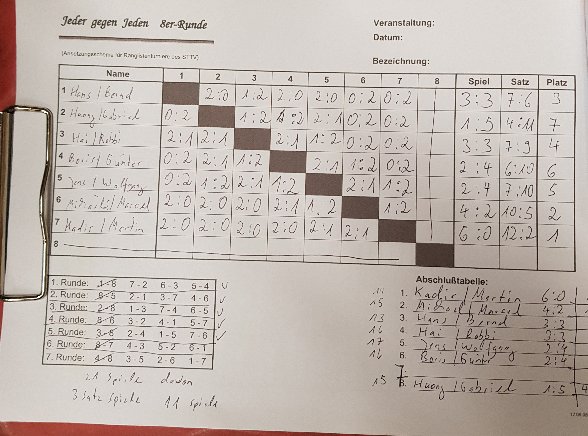 Jeder gegen Jeden 8er-Runde
Veranstaltung:
Datum:
(Ansetzungsschema für Ranglistenturniere des BTTV)
Bezeichnung:
Name 1 2 3 4 5 6 7 8 Spiel Satz Platz
1 Hans / Bernd 2:0 1:2 2:0 2:0 0:2 0:2 3:3 7:6 3
2 Huong / Gabriel 0:2 1:2 1:2 2:1 0:2 0:2 1:5 4:11 7
3 Hai / Robbi 2:1 2:1 2:1 1:2 0:2 0:2 3:3 7:9 4
4 Boris / Gunter 0:2 2:1 1:2 2:1 1:2 0:2 2:4 6:10 6
5 Jens / Wolfgang 0:2 1:2 2:1 1:2 2:1 1:2 2:4 7:10 5
6 Michael / Marcel 2:0 2:0 2:0 2:1 1:2 1:2 4:2 10:5 2
7 Kadir / Martin 2:0 2:0 2:0 2:0 2:1 2:1 6:0 12:2 1
8
1. Runde: 1-8 7-2 6-3 5-4
2. Runde: 8-5 2-1 3-7 4-6
3. Runde: 2-8 1-3 7-4 6-5
4. Runde: 8-6 3-2 4-1 5-7
5. Runde: 3-8 2-4 1-5 7-6
6. Runde: 8-7 4-3 5-2 6-1
7. Runde: 4-8 3-5 2-6 1-7
21 Spiele davon
3 Satz Spiele 11 Spiele
Abschlußtabelle:
1. Kadir / Martin 6:0
15 2. Michael / Marcel 4:2
13 3. Hans / Bernd 3:3
16 4. Hai / Robbi 3:3
17 5. Jens / Wolfgang
16 6. Boris / Gunter 2:4
7.
15 8. Huong / Gabriel 1:5